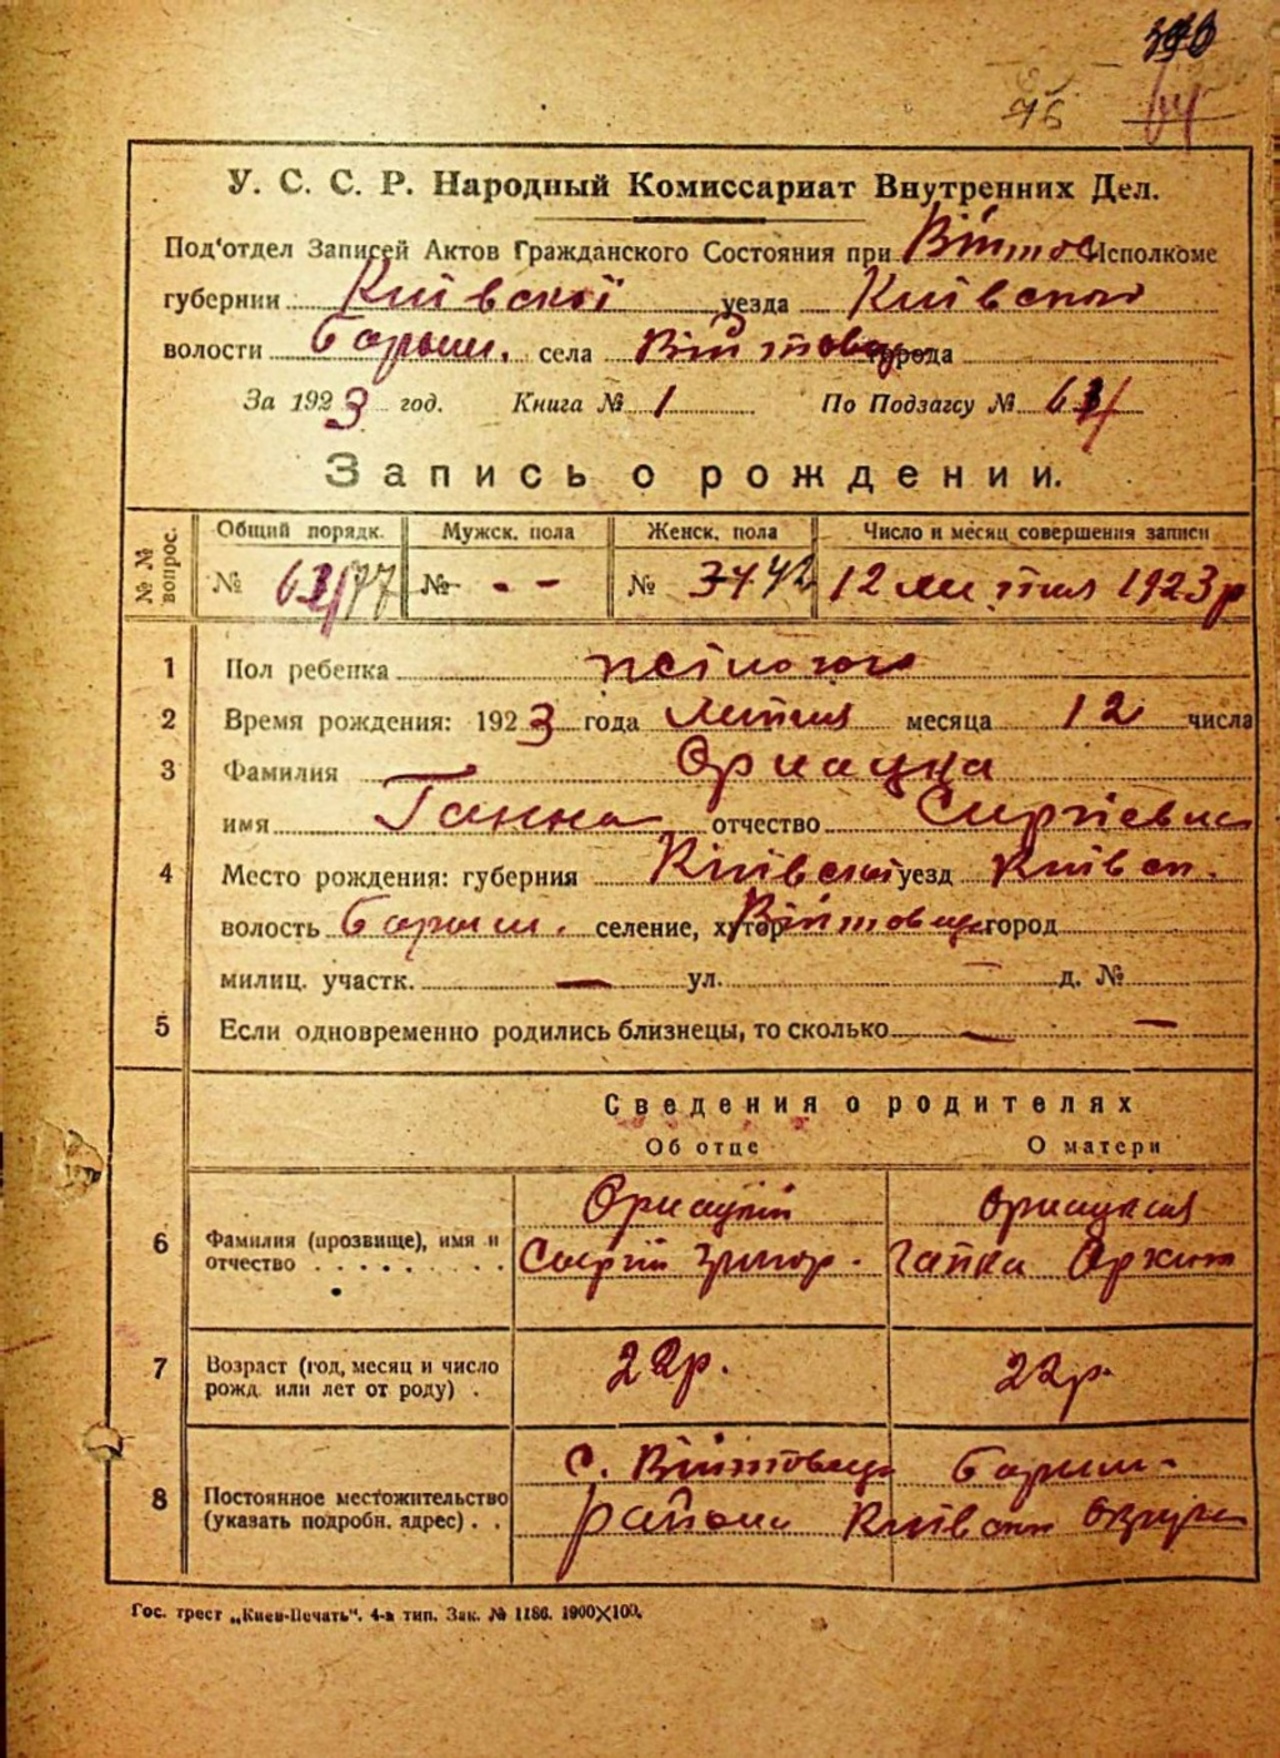 76
У. С. С. Р. Народный Комиссариат Внутренних Дел.
Под'отдел Записей Актов Гражданского Состояния при Війтов Исполкоме
губернии Київскої уезда Київского
волости Бориш. села Війтовці города
За 1923 год. Книга № 1 По Подзагсу №
Запись о рождении.
№ № вопрос.
Общий порядк. Мужск. пола Женск. пола Число и месяц совершения записи
№ 77 № - - № 42 12 лютня 1923 р
1 Пол ребенка жіночого
2 Время рождения: 1923 года Лютня месяца 12 числа
3 Фамилия
имя Ганна отчество Сиргіевна
4 Место рождения: губерния Київскої уезд Київск.
волость Бориш. селение, хутор Війтовці город
милиц. участк. — ул. — д. №
5 Если одновременно родились близнецы, то сколько — —
Сведения о родителях
Об отце О матери
6 Фамилия (прозвище), имя и отчество
Сергій Григор. Гапка
7 Возраст (год, месяц и число рожд. или лет от роду) . 22р. 22р.
8 Постоянное местожительство (указать подробн. адрес) . .
с. Війтовці Бориш-
району Київськ округи
Гос. трест „Киев-Печать“. 4-я тип. Зак. № 1186. 1900×100.